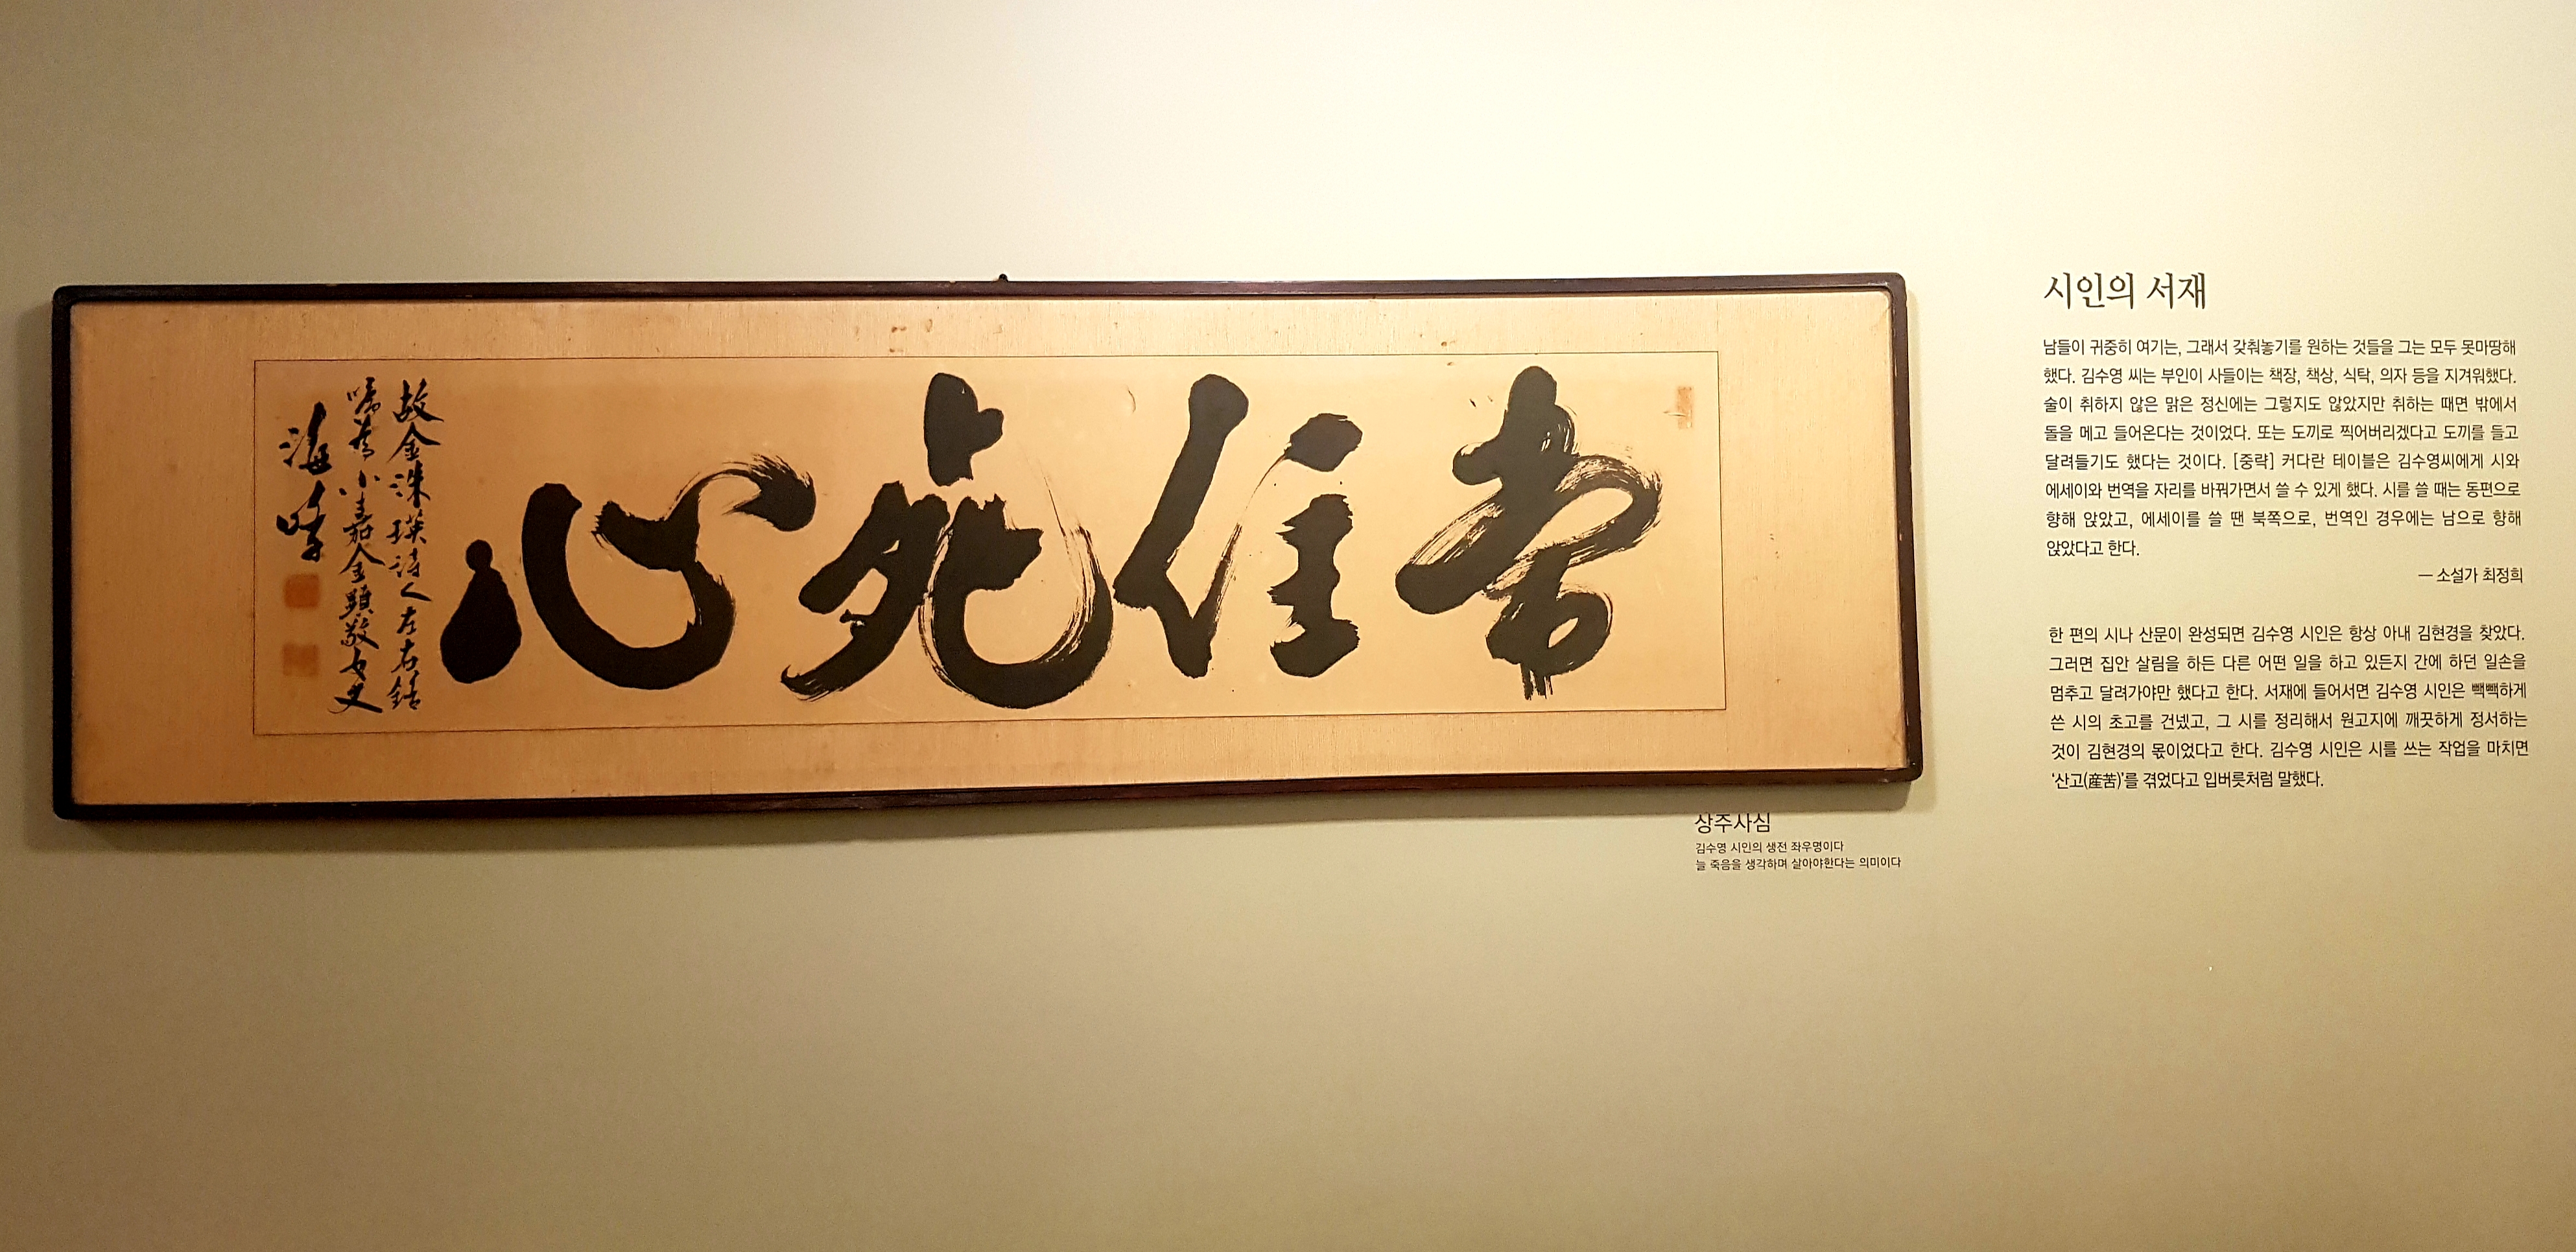 常住死心
故金洙暎詩人左右銘
嘱為小嘉金顯敬女史
海
상주사심
김수영 시인의 생전 좌우명이다
늘 죽음을 생각하며 살아야한다는 의미이다
시인의 서재
남들이 귀중히 여기는, 그래서 갖춰놓기를 원하는 것들을 그는 모두 못마땅해
했다. 김수영 씨는 부인이 사들이는 책장, 책상, 식탁, 의자 등을 지겨워했다.
술이 취하지 않은 맑은 정신에는 그렇지도 않았지만 취하는 때면 밖에서
돌을 메고 들어온다는 것이었다. 또는 도끼로 찍어버리겠다고 도끼를 들고
달려들기도 했다는 것이다. [중략] 커다란 테이블은 김수영씨에게 시와
에세이와 번역을 자리를 바꿔가면서 쓸 수 있게 했다. 시를 쓸 때는 동편으로
향해 앉았고, 에세이를 쓸 땐 북쪽으로, 번역인 경우에는 남으로 향해
앉았다고 한다.
— 소설가 최정희
한 편의 시나 산문이 완성되면 김수영 시인은 항상 아내 김현경을 찾았다.
그러면 집안 살림을 하든 다른 어떤 일을 하고 있든지 간에 하던 일손을
멈추고 달려가야만 했다고 한다. 서재에 들어서면 김수영 시인은 빽빽하게
쓴 시의 초고를 건넸고, 그 시를 정리해서 원고지에 깨끗하게 정서하는
것이 김현경의 몫이었다고 한다. 김수영 시인은 시를 쓰는 작업을 마치면
'산고(産苦)'를 겪었다고 입버릇처럼 말했다.